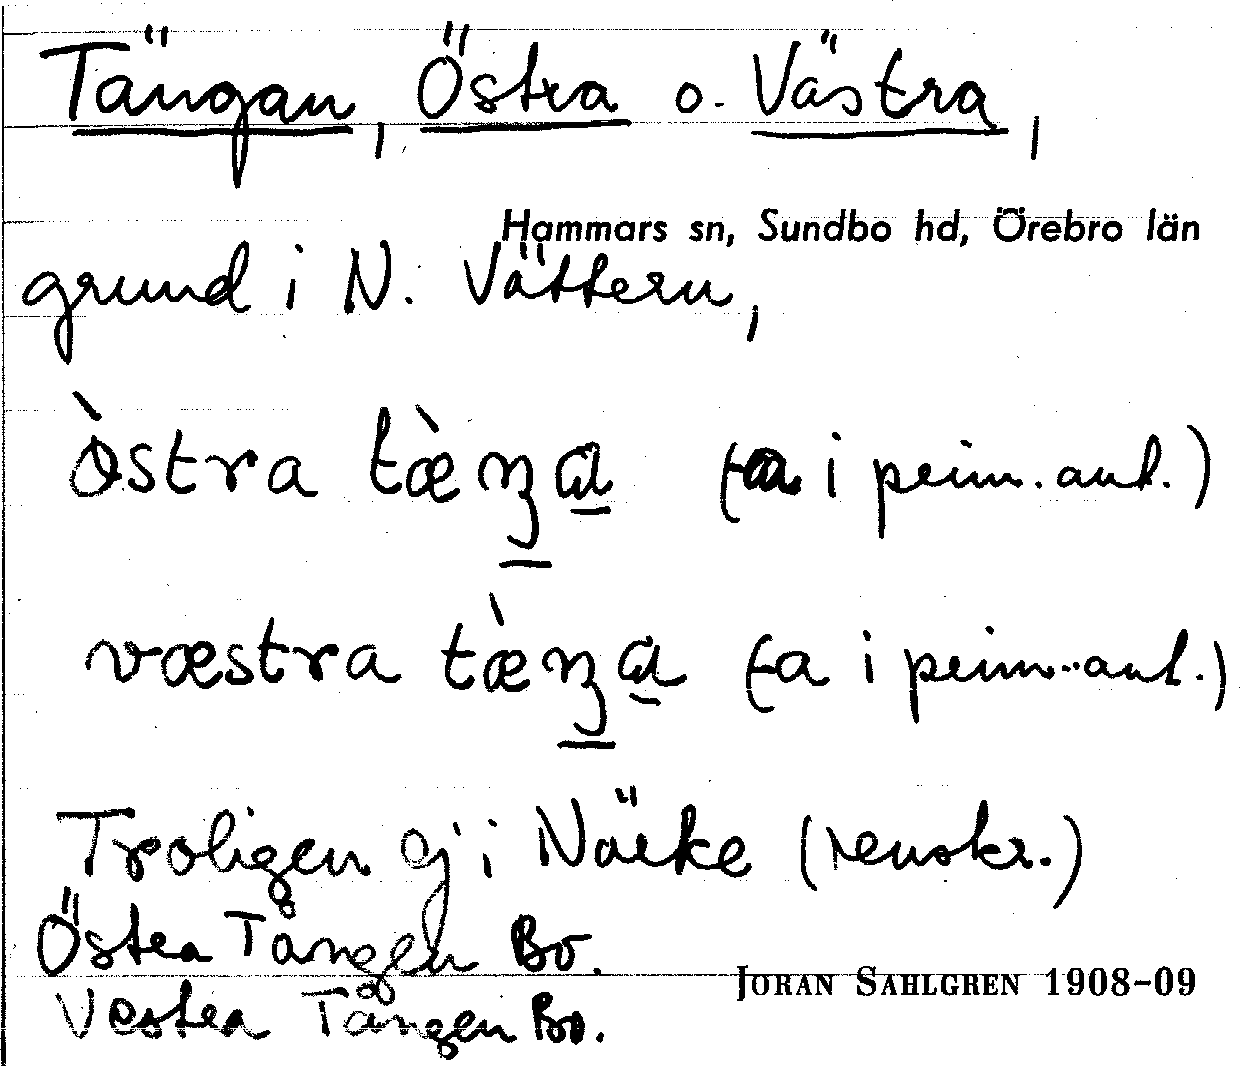 Tängan, Östra o. Västra,
Hammars sn, Sundbo hd, Örebro län
grund i N. Vättern,
òstra tæ̀ŋa (-a i prim. ant.)
væstra tæ̀ŋa (-a i prim. ant.)
Troligen ej i Närke (renskr.)
Östra Tången Bo.
Vestra Tången Bo.
JORAN SAHLGREN 1908-09